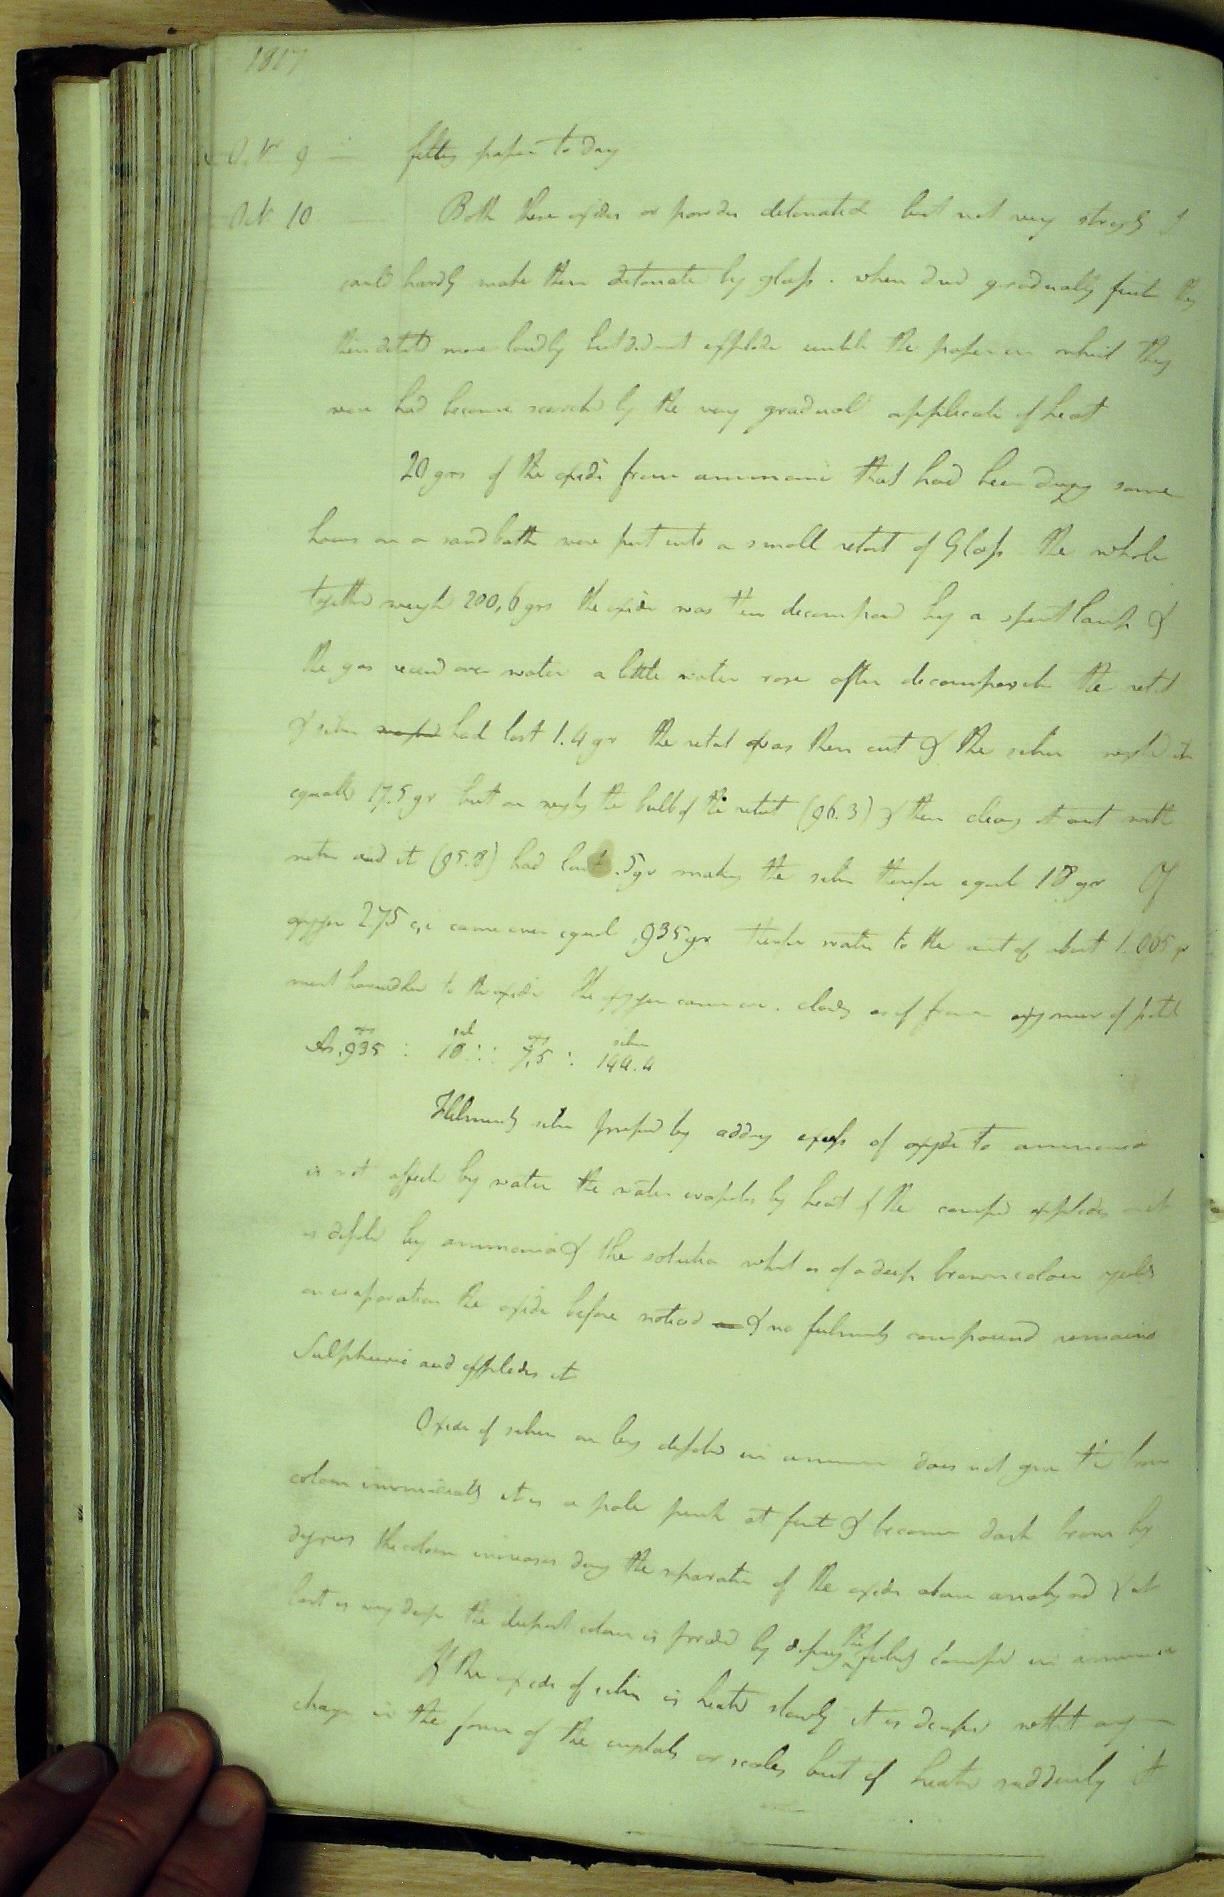 1817
Oct 9 — filtg paper to day
Oct 10 — Both these oxides or powders detonated but not very strongly I
could hardly make them detonate by glass. when dried gradually first they
then detontd more loudly but did not explode until the paper on which they
were had become scorchd by the very gradual applicatn of heat
20 grs of the oxide from ammonia that had been dryg some
hours on a sand bath were put into a small retort of Glass the whole
togethr weighd 200,6 grs the oxide was then decomposd by a spirit lamp &
the gas recevd over water a little water rose after decompositn the retort
& silver had lost 1.4 gr the retort was then cut & the silver weighd it
equalld 17.5 gr but on weighg the bulb of the retort (96.3) & then cleang it out with
nitric acid it (95.8) had lost .5 gr makg the silver therefore equal 18 gr Of
oxygen 2.75 c,i came over equal ,935 gr therefor water to the amt of about 1.065 gr
must have adherd to the oxide the oxygen came over cloudy as if from oxymur of potsh
As ,935 : 18 :: 7,5 : 144.4
oxy sil oxy silver
Fulminatg silver prepard by addng excess of oxide to ammonia
is not affectd by water the water evaporates by heat & the compnd explodes it
is dissolvd by ammonia & the solution which is of a deep brown colour yields
on evaporation the oxide before noticed & no fulminatg compound remains
Sulphuric acid explodes it
Oxide of silver on beg dissolvd in ammonia does not give the brown
colour immediately it is a pale pink at first & becomes dark brown by
degrees the colour increases durg the separatn of the oxide above analysed & at
last is very deep the deepest colour is producd by dissolvg the fulmtg compnd in ammonia
If the oxide of silver is heated slowly it is decompsd without any
change in the form of the crystals or scales but if heated suddenly it